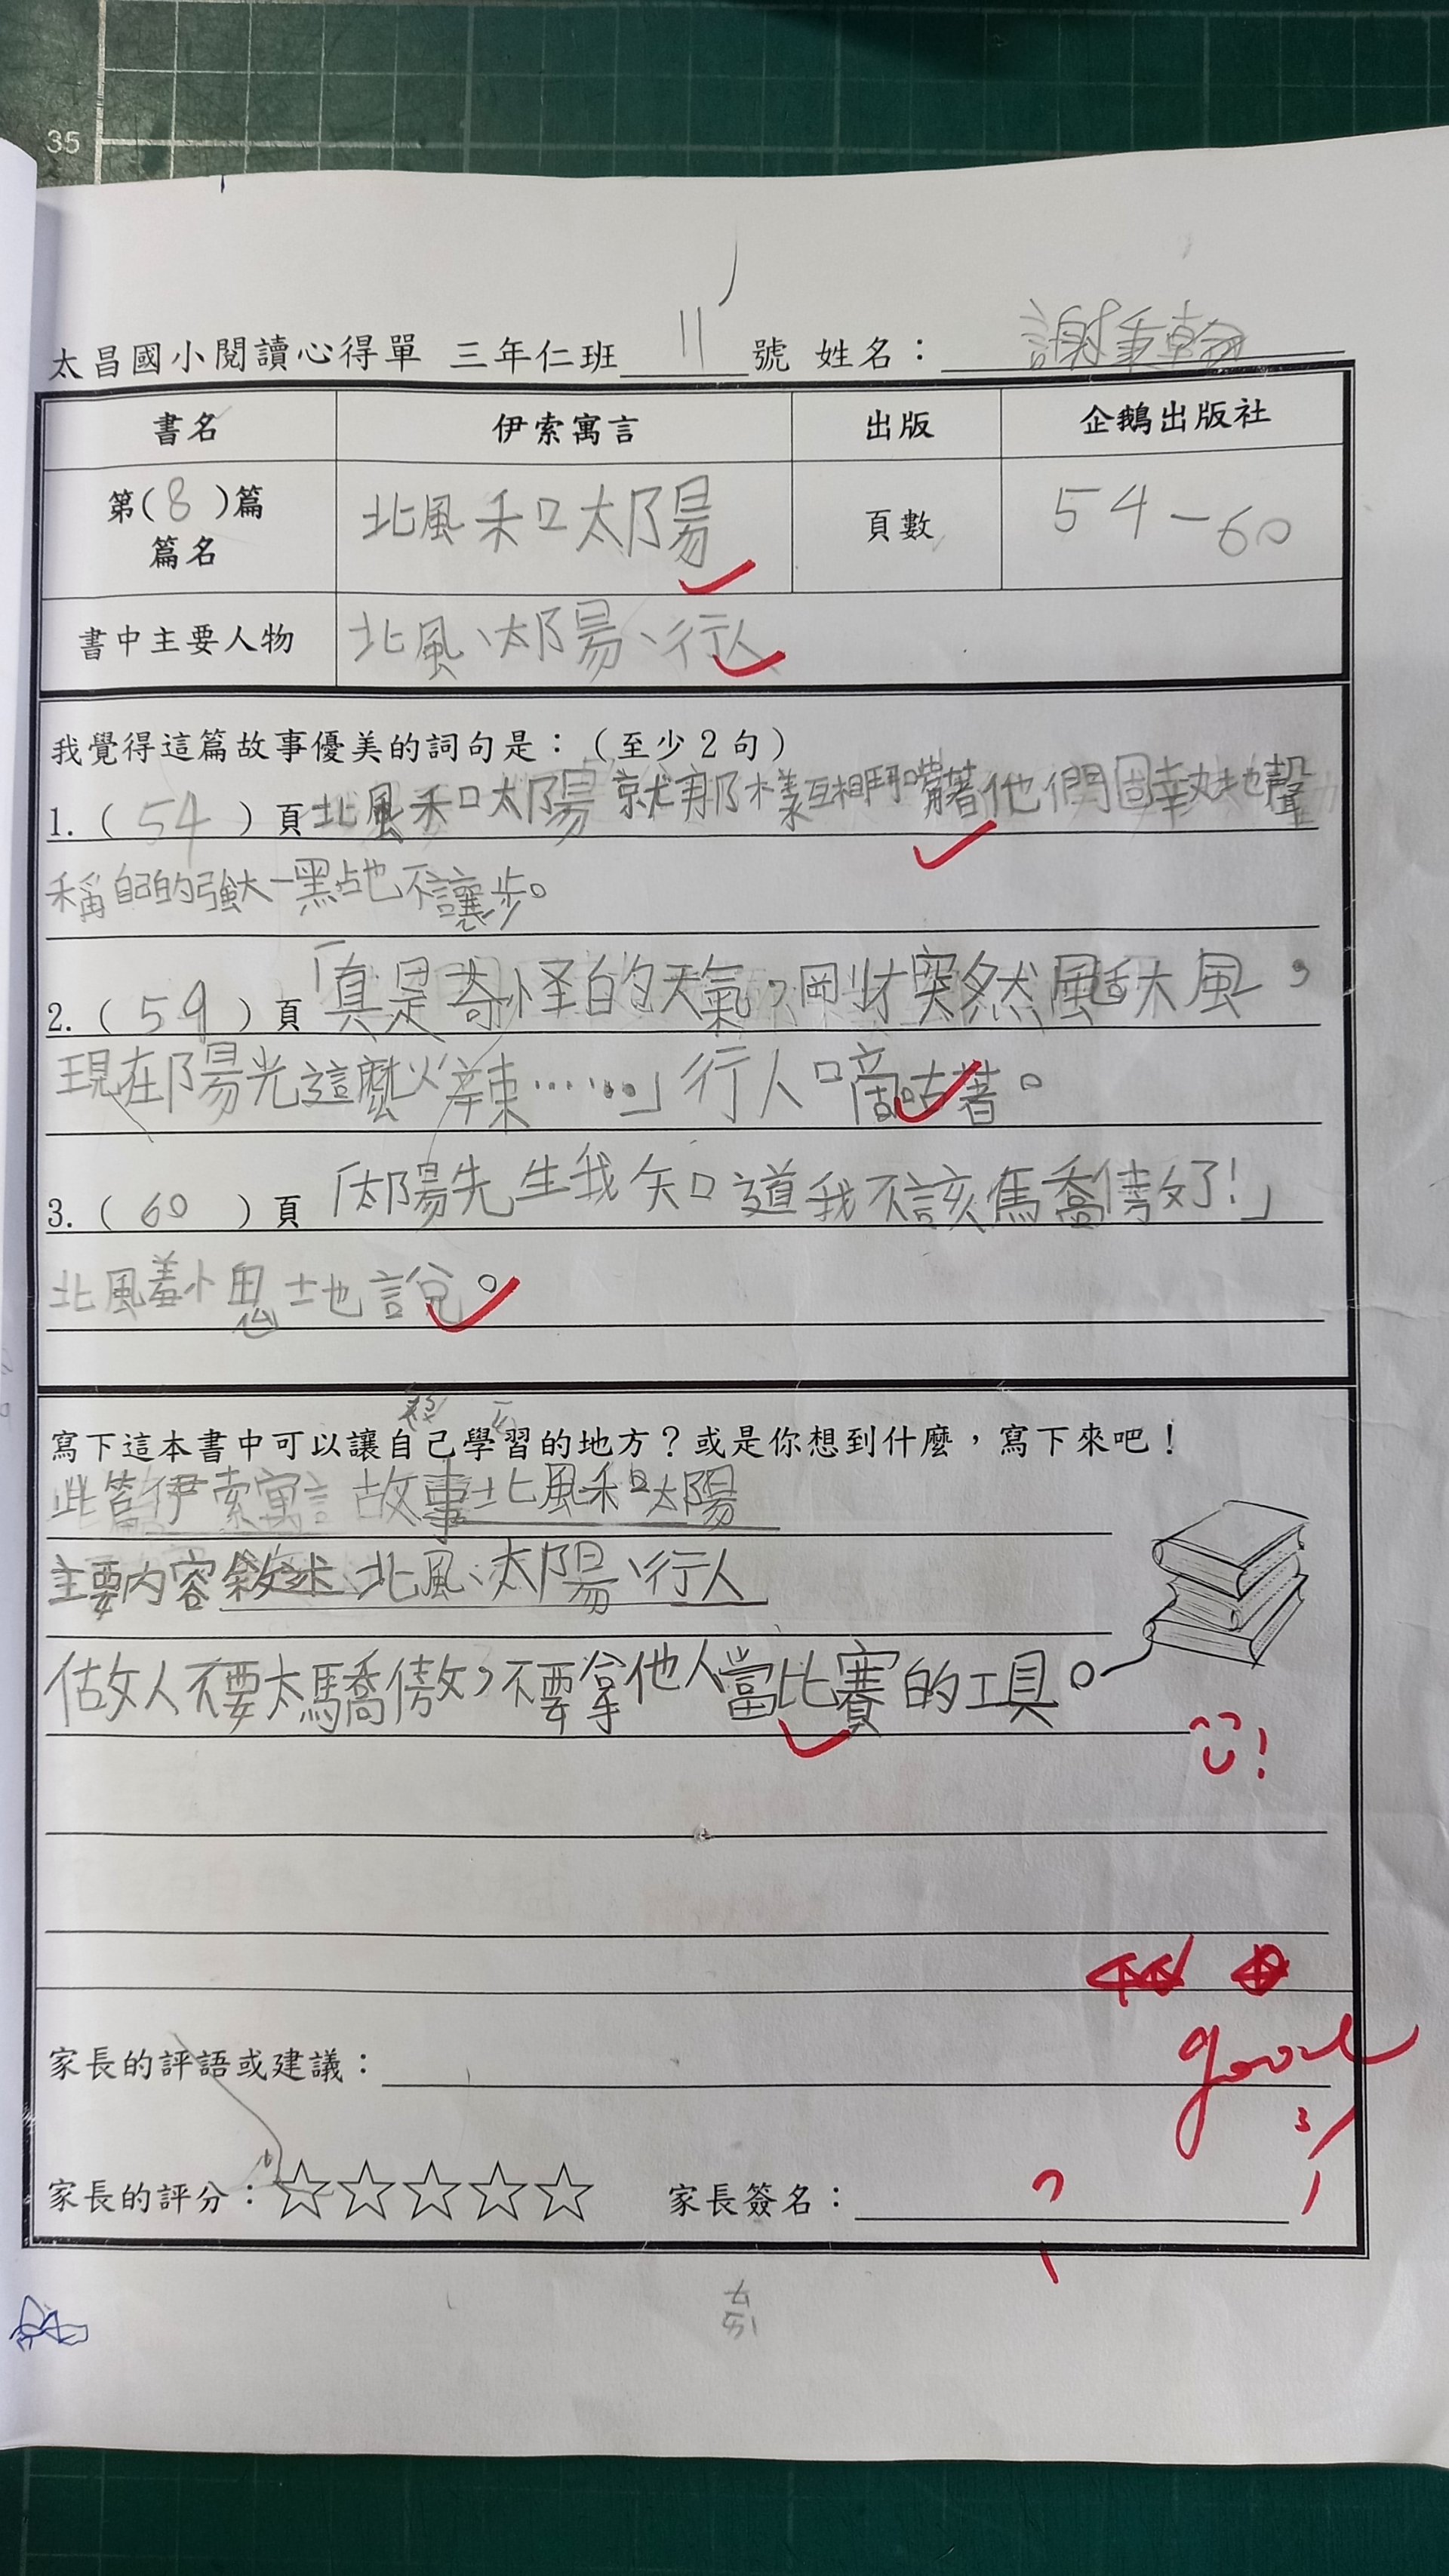 35
太昌國小閱讀心得單 三年仁班 11 號 姓名：謝秉翰
書名 伊索寓言 出版 企鵝出版社
第(8)篇 篇名 北風和太陽 頁數 54-60
書中主要人物 北風、太陽、行人
我覺得這篇故事優美的詞句是：（至少2句）
1.（54）頁 北風和太陽就那樣互相鬥嘴著他們固執地聲
稱自己的強大一點也不讓步。
2.（59）頁「真是奇怪的天氣，剛才突然颳大風，
現在陽光這麼火辣……」行人嘀咕著。
3.（60）頁「太陽先生我知道我不該驕傲了!」
北風羞愧地說。
寫下這本書中可以讓自己學習的地方？或是你想到什麼，寫下來吧！
此篇伊索寓言故事北風和太陽
主要內容敘述北風、太陽、行人
做人不要太驕傲，不要拿他人當比賽的工具。
good
3/1
家長的評語或建議：
家長的評分：☆☆☆☆☆ 家長簽名： ?